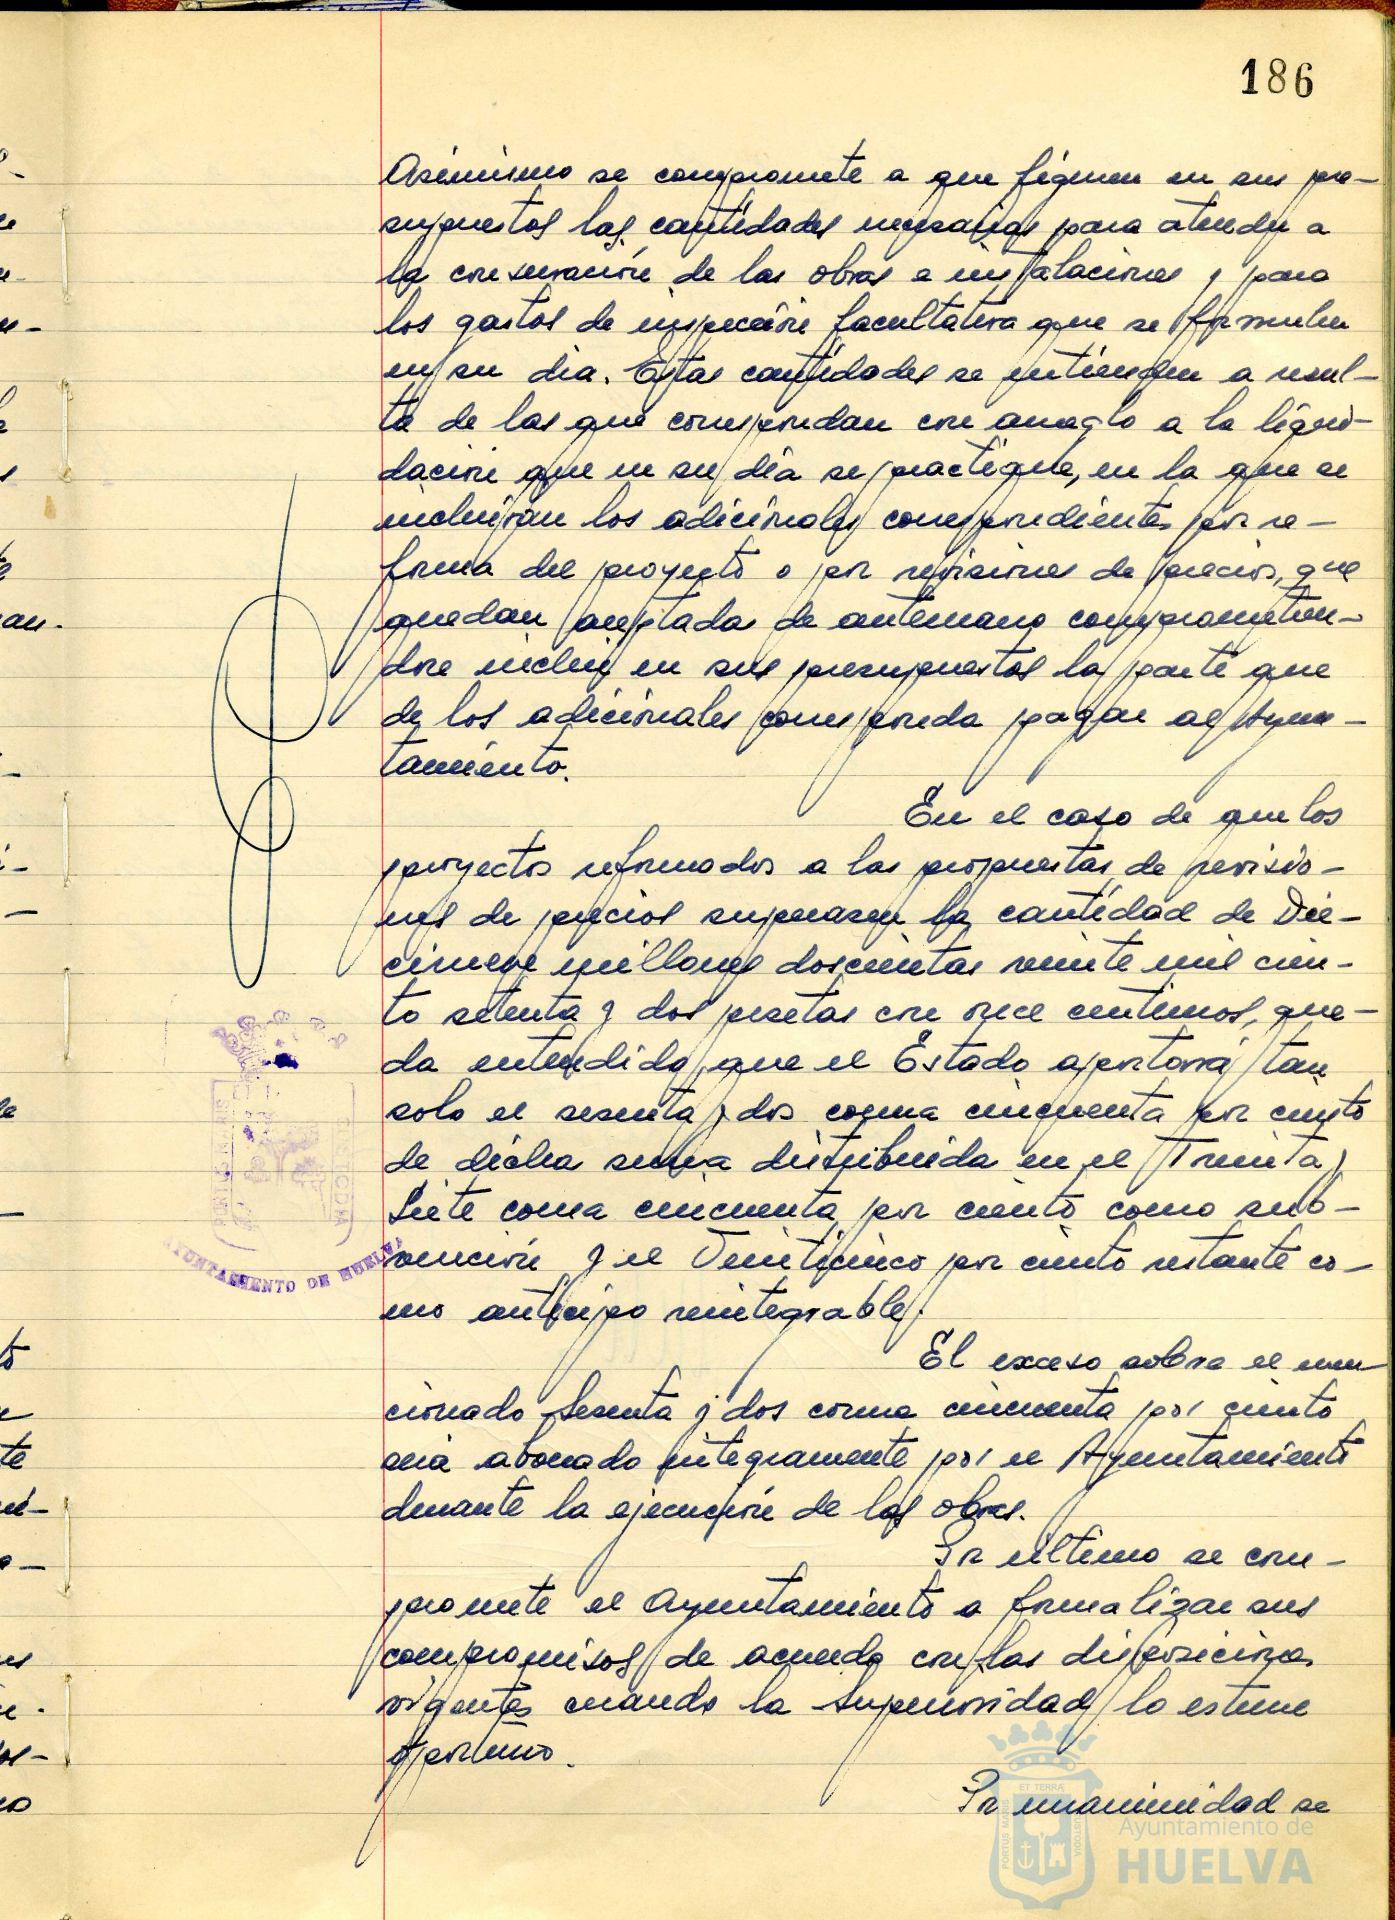 186
Asimismo se compromete a que figuren en sus pre-
supuestos las cantidades necesarias para atender a
la conservación de las obras e instalaciones y para
los gastos de inspección facultativa que se formulen
en su dia. Estas cantidades se entienden a resul-
ta de las que correspondan con arreglo a la liqui-
dación que en su día se practique, en la que se
incluiran los adicionales correspondientes por re-
forma del proyecto o por revisiones de precios, que
quedan aceptadas de antemano comprometien-
dose incluir en sus presupuestos la parte que
de los adicionales corresponda pagar al Ayun-
tamiento.
En el caso de que los
proyectos reformados a las propuestas de revisio-
nes de precios superasen la cantidad de Die-
cinueve millones doscientas veinte mil cien-
to setenta y dos pesetas con once centimos, que-
da entendido que el Estado aportará tan
solo el sesenta y dos coma cincuenta por ciento
de dicha suma distribuida en el Treinta y
Siete coma cincuenta por ciento como sub-
vención y el Veinticinco por ciento restante co-
mo anticipo reintegrable.
El exceso sobre el men-
cionado Sesenta y dos coma cincuenta por ciento
será abonado integramente por el Ayuntamiento
durante la ejecución de las obras.
Por último se com-
promete el Ayuntamiento a formalizar sus
compromisos de acuerdo con las disposiciones
vigentes cuando la Superioridad lo estime
oportuno.
Por unanimidad se
PORTUS MARIS
CUSTODIA
AYUNTAMIENTO DE HUELVA
PORTUS MARIS
ET TERRÆ
CUSTODIA
Ayuntamiento de
HUELVA